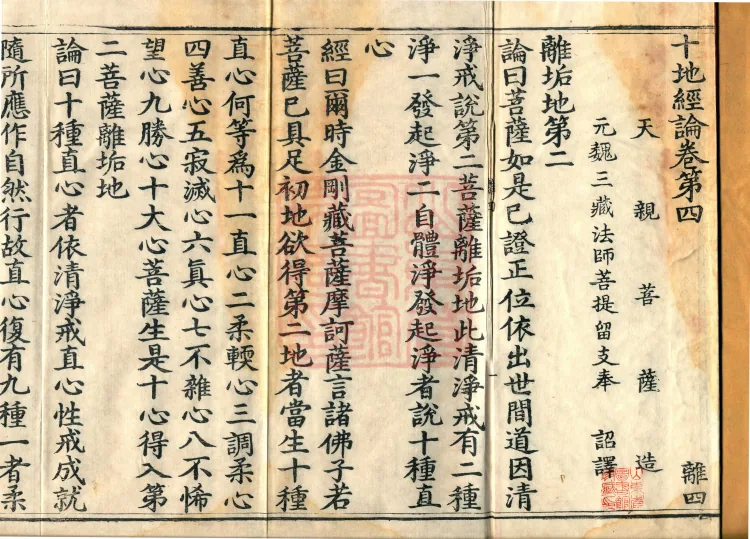 十地經論卷第四 離四
天親菩薩造
元魏三藏法師菩提留支奉 詔譯
離垢地第二
論曰菩薩如是已證正位依出世間道因清
淨戒說第二菩薩離垢地此清淨戒有二種
淨一發起淨二自體淨發起淨者說十種直
心
經曰爾時金剛藏菩薩摩訶薩言諸佛子若
菩薩已具足初地欲得第二地者當生十種
直心何等爲十一直心二柔輭心三調柔心
四善心五寂滅心六眞心七不雜心八不悕
望心九勝心十大心菩薩生是十心得入第
二菩薩離垢地
論曰十種直心者依清淨戒直心性戒成就
隨所應作自然行故直心復有九種一者柔